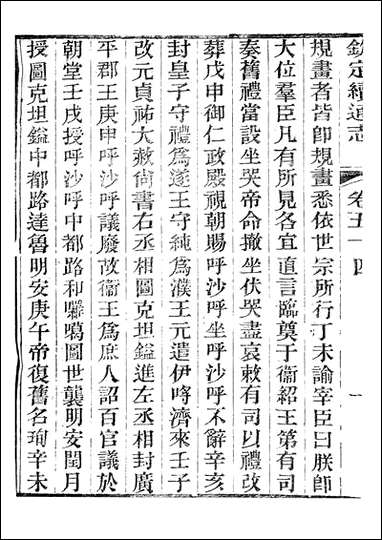 欽定續通志 卷五十四 一
規畫者皆卽規畫悉依世宗所行丁未諭宰臣曰朕卽
大位羣臣凡有所見各宜直言臨奠于衞紹王第有司
奏舊禮當設坐哭帝命撤坐伏哭盡哀敕有司以禮改
葬戊申御仁政殿視朝賜呼沙呼坐呼沙呼不辭辛亥
封皇子守禮爲遂王守純爲濮王元遣伊啅濟來壬子
改元貞祐大赦尙書右丞相圖克坦鎰進左丞相封廣
平郡王庚申呼沙呼議廢故衞王爲庶人詔百官議於
朝堂壬戌授呼沙呼中都路和囉噶圖世襲明安閏月
授圖克坦鎰中都路達魯明安庚午帝復舊名珣辛未